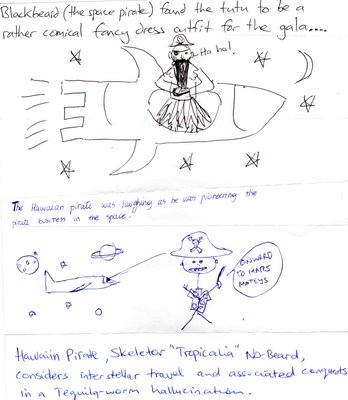 Blackbeard (the space pirate) found the tutu to be a
rather comical fancy dress outfit for the gala....
Ha ha!
The Hawaiian pirate was laughing as he was pioneering the
pirate business in the space.
ONWARD
TO MARS
MATEYS
Hawaiin Pirate, Skeletor "Tropicalia" No-Beard,
considers interstellar travel and associated conquests
in a Tequila-worm hallucination.